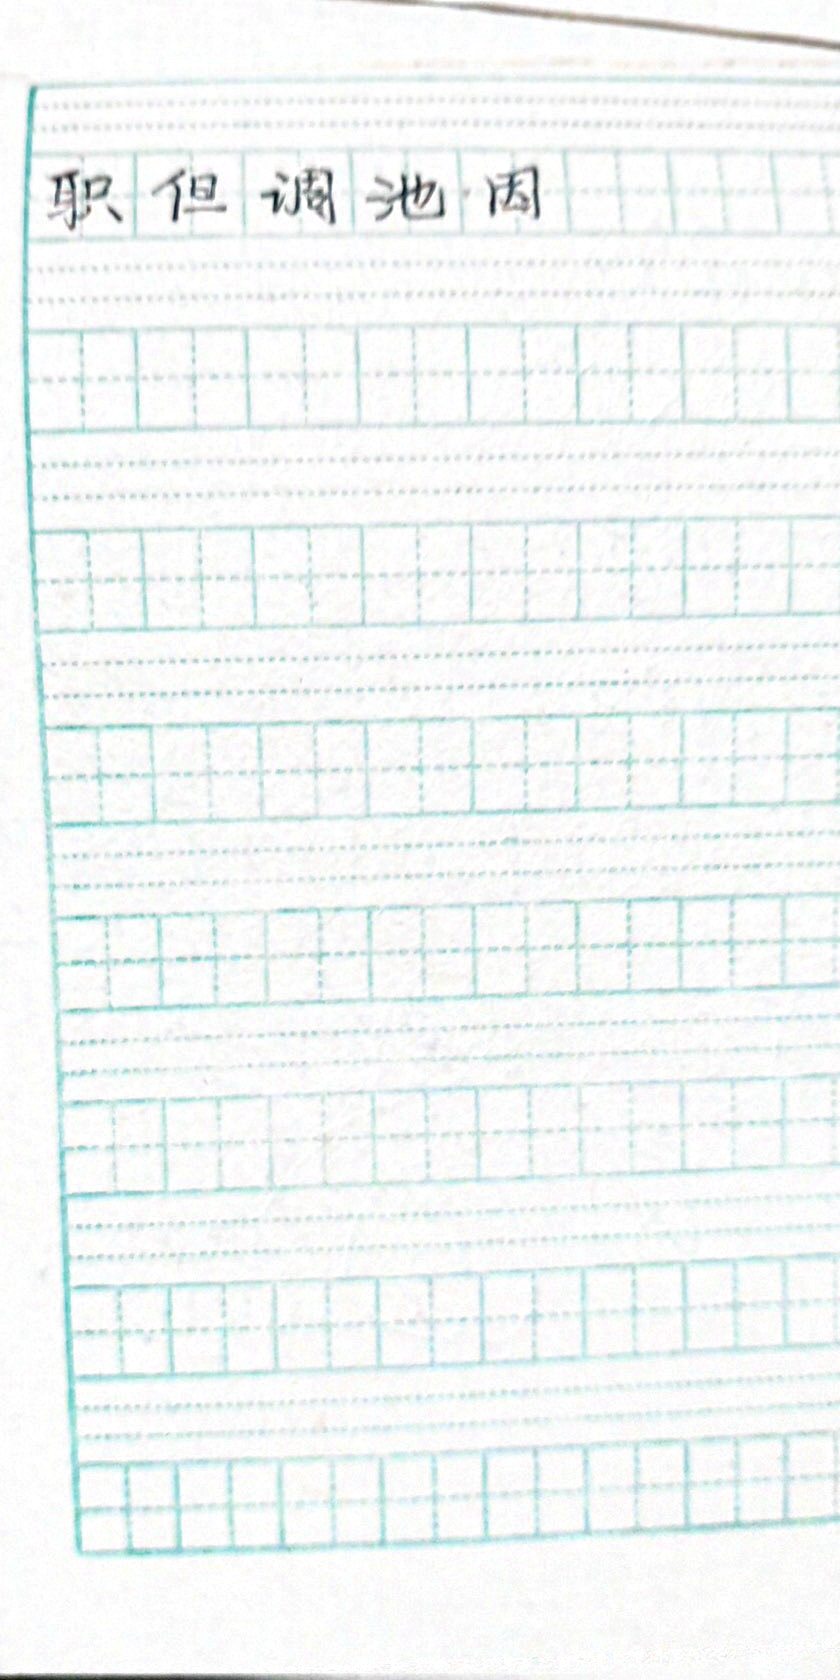 职但调池因